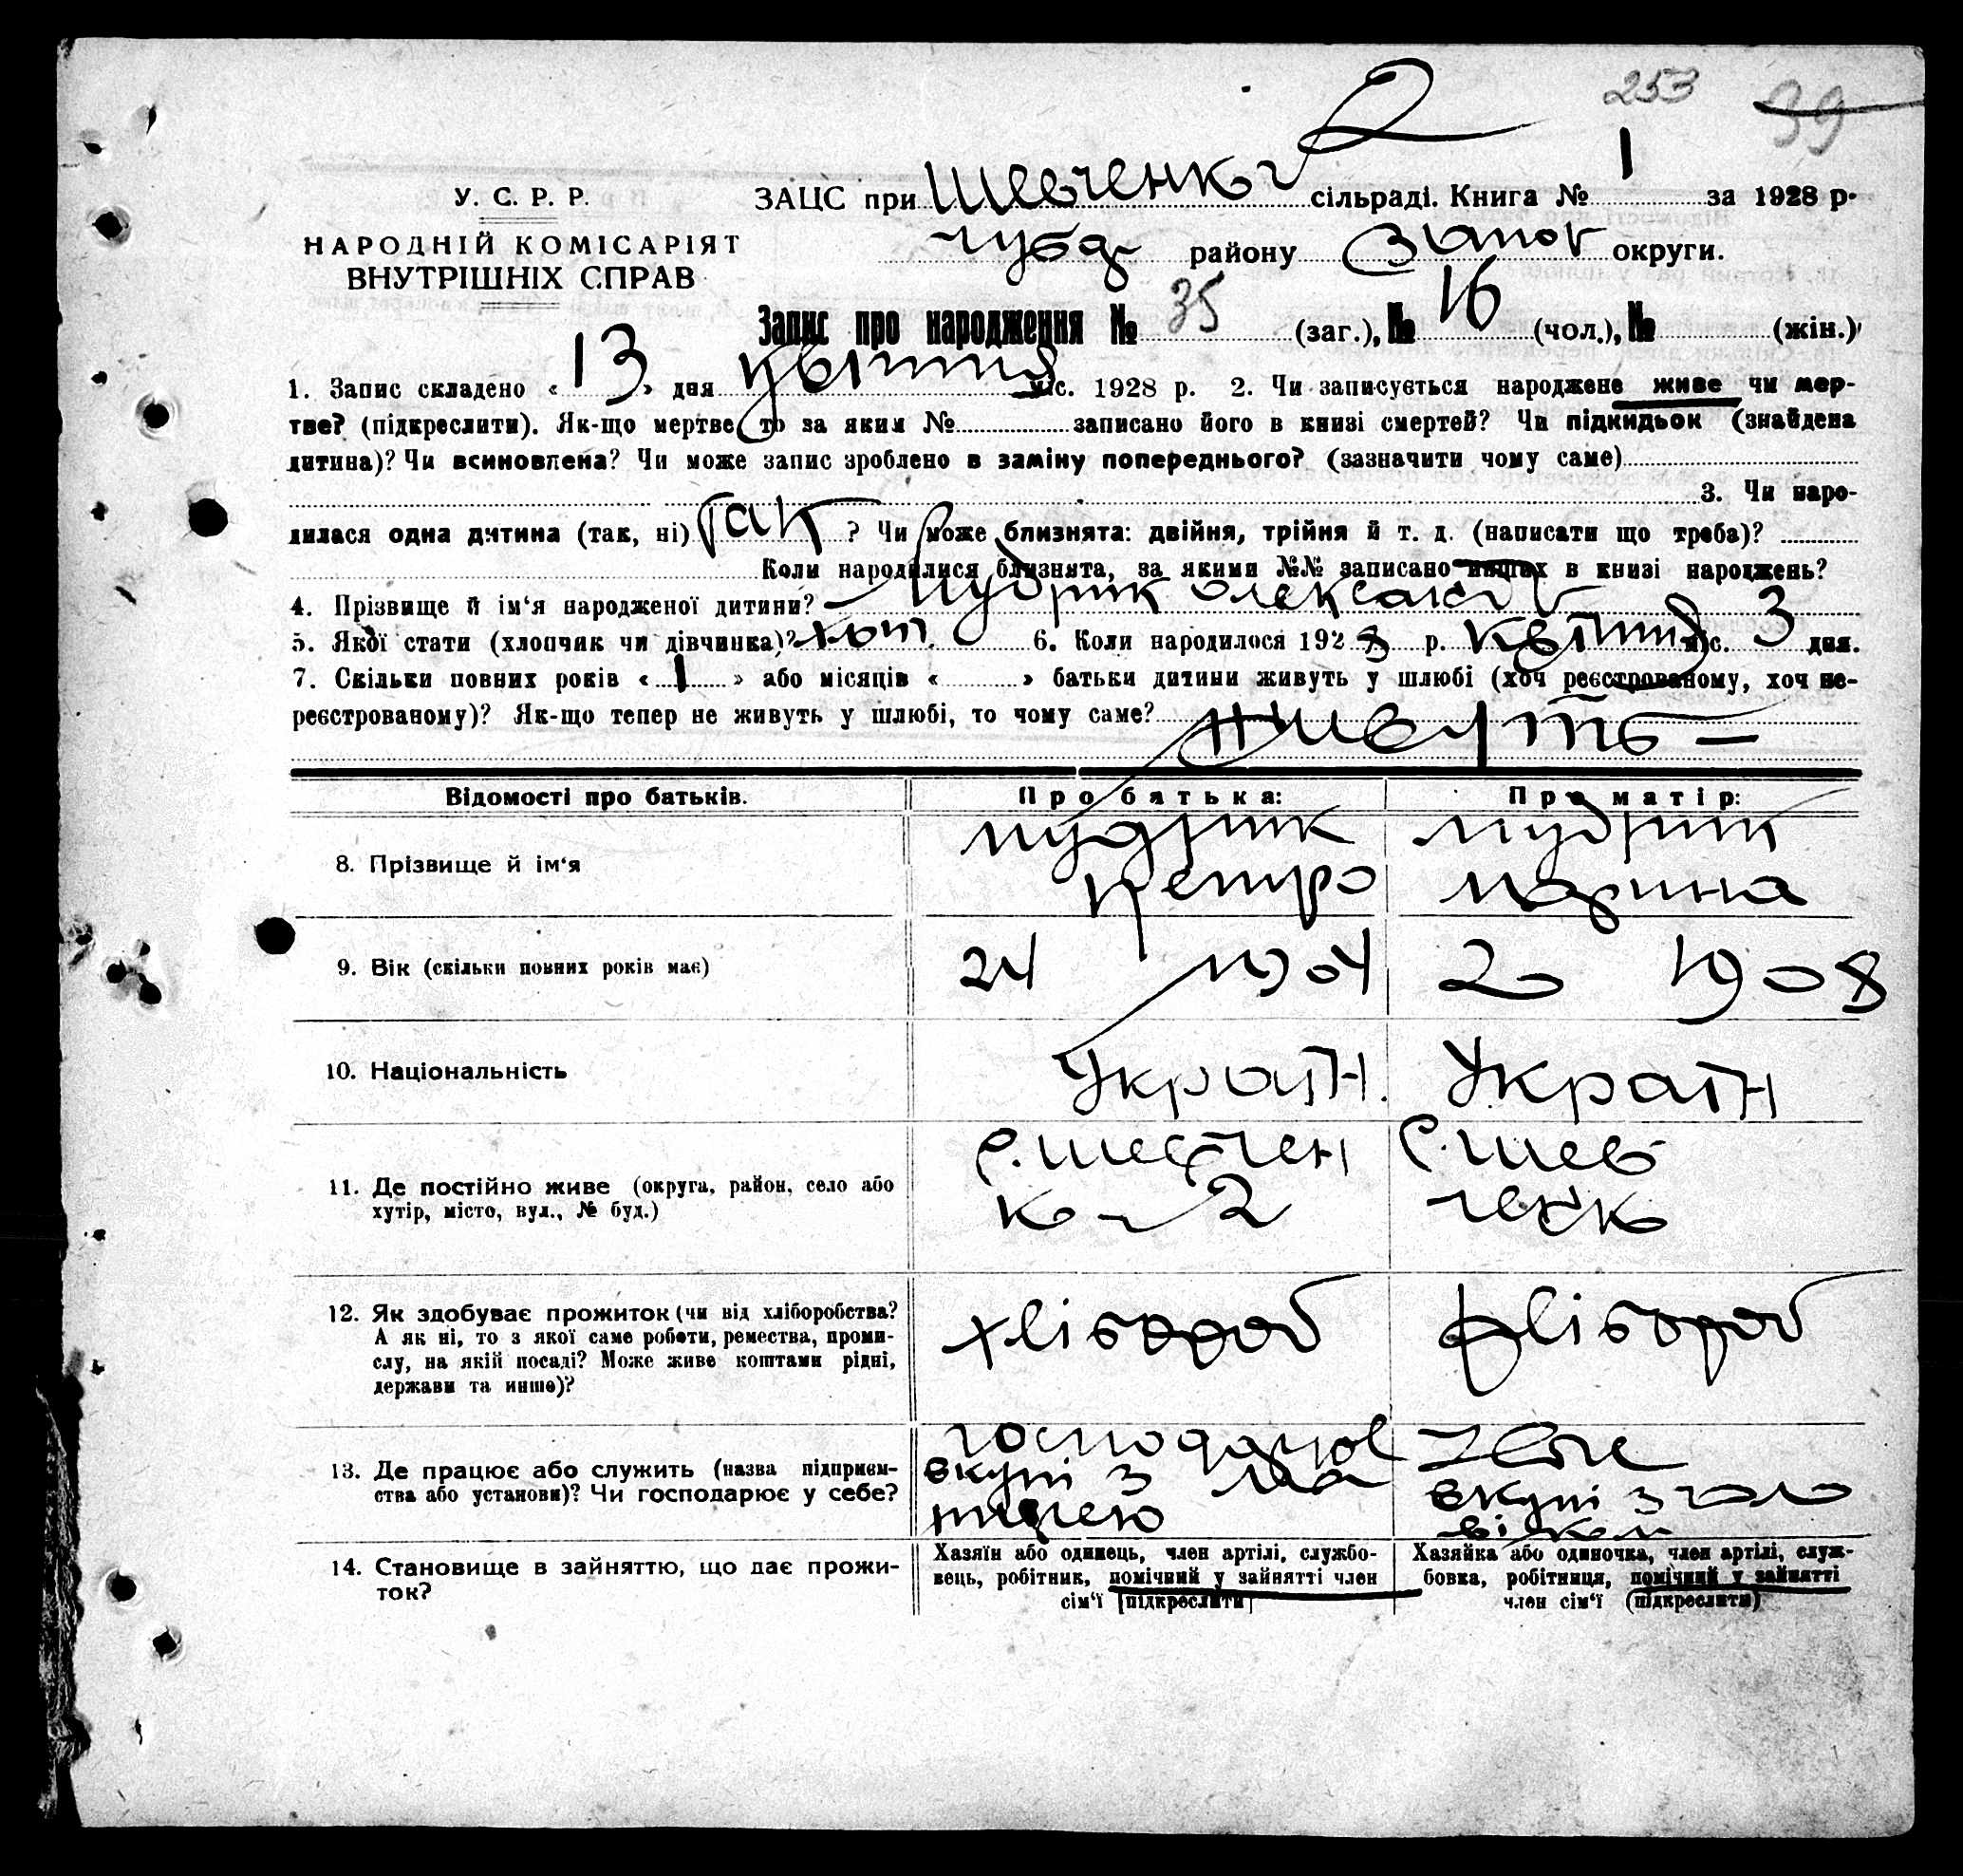 253 39
2
У. С. Р. Р.
НАРОДНІЙ КОМІСАРІЯТ
ВНУТРІШНІХ СПРАВ
ЗАЦС при Шевченко сільраді. Книга № 1 за 1928 р.
району Запор округи.
Запис про народження № 35 (заг.), № 16 (чол.), № (жін.)
1. Запис складено « 13 » дня квітня міс. 1928 р. 2. Чи записується народжене живе чи мер-
тве? (підкреслити). Як-що мертве то за яким № записано його в книзі смертей? Чи підкидьок (знайдена
дитина)? Чи всиновлена? Чи може запис зроблено в заміну попереднього? (зазначити чому саме)
3. Чи наро-
дилася одна дитина (так, ні) так ? Чи може близнята: двійня, трійня й т. д. (написати що треба)?
Коли народилися близнята, за якими №№ записано инших в книзі народжень?
4. Прізвище й ім'я народженої дитини? Мудрик Олександр
5. Якої стати (хлопчик чи дівчинка)? хлоп. 6. Коли народилося 1928 р. квітня міс. 3 дня.
7. Скільки повних років « 1 » або місяців « » батьки дитини живуть у шлюбі (хоч реєстрованому, хоч не-
реєстрованому)? Як-що тепер не живуть у шлюбі, то чому саме? живуть —
Відомості про батьків. Про батька: Про матір:
8. Прізвище й ім'я
Мудрик Петро
Мудрик Марина
9. Вік (скільки повних років має)
24 1904
20 1908
10. Національність
Україн.
Україн
11. Де постійно живе (округа, район, село або
хутір, місто, вул., № буд.)
с. Шевчен
к 2
с. Шев
ченк
12. Як здобуває прожиток (чи від хліборобства?
А як ні, то з якої саме роботи, ремества, проми-
слу, на якій посаді? Може живе коштами рідні,
держави та инше)?
хлібороб
хлібороб
13. Де працює або служить (назва підприєм-
ства або установи)? Чи господарює у себе?
господарює
вкупі з
вкупі з чоло
віком
14. Становище в зайняттю, що дає прожи-
ток?
Хазяїн або одинець, член артілі, службо-
вець, робітник, помічний у зайнятті член
сім'ї (підкреслити)
Хазяйка або одиночка, член артілі, служ-
бовка, робітниця, помічний у зайнятті
член сім'ї (підкреслити)